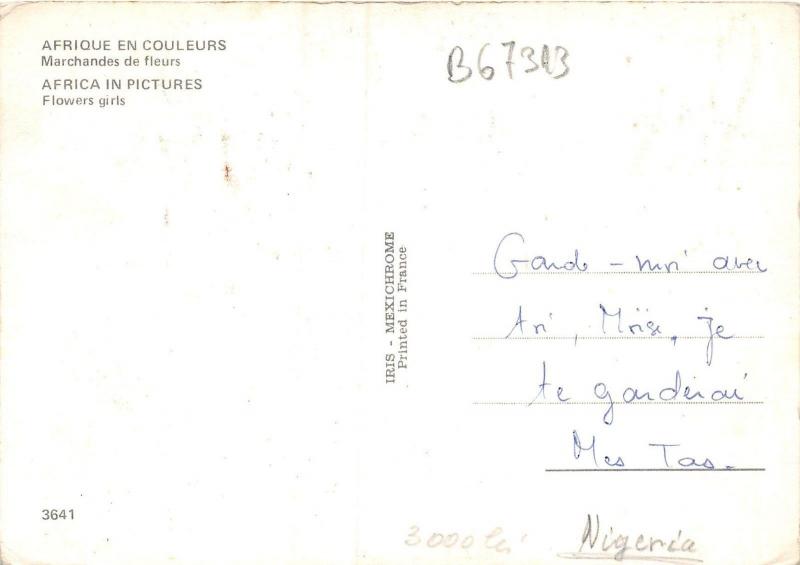 AFRIQUE EN COULEURS
Marchandes de fleurs
AFRICA IN PICTURES
Flowers girls
B67313
IRIS - MEXICHROME
Printed in France
Garde - moi avec
toi, Moïse, je
te garderai
Mes Tas.
3641
3000 lei
Nigeria